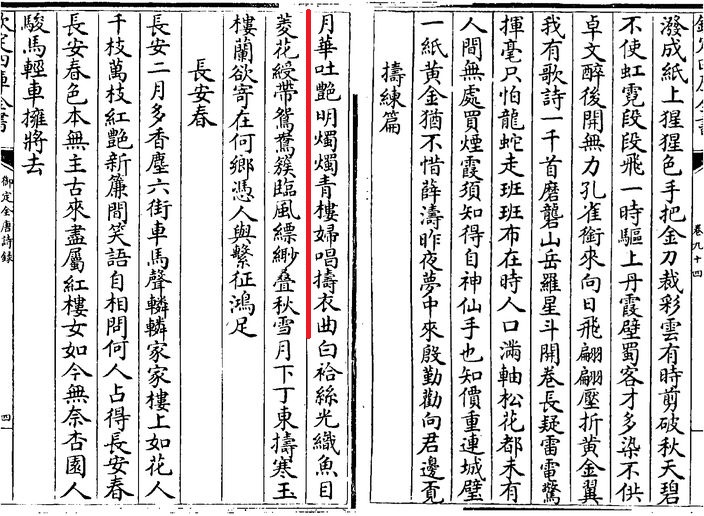 卷九十四
潑成紙上猩猩色手把金刀裁彩雲有時剪破秋天碧
不使虹霓段段飛一時驅上丹霞壁蜀客才多染不供
卓文醉後開無力孔雀銜來向日飛翩翩壓折黄金翼
我有歌詩一千首磨礲山岳羅星斗開卷長疑雷電驚
揮毫只怕龍蛇走班班布在時人口滿軸松花都未有
人間無處買煙霞須知得自神仙手也知價重連城璧
一紙黄金猶不惜薛濤昨夜夢中來殷勤勸向君邊覓
擣練篇
月華吐艷明燭燭青樓婦唱擣衣曲白袷絲光織魚目
菱花綬帶鴛鴦簇臨風縹緲疊秋雪月下丁東擣寒玉
樓蘭欲寄在何鄉憑人與繫征鴻足
長安春
長安二月多香塵六街車馬聲轔轔家家樓上如花人
千枝萬枝紅艷新簾間笑語自相問何人占得長安春
長安春色本無主古來盡屬紅樓女如今無奈杏園人
駿馬輕車擁將去
欽定四庫全書
御定全唐詩録
四